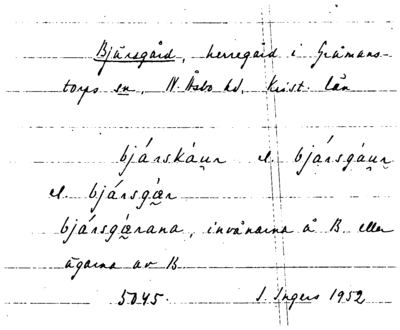 Bjärsgård, herregård i Gråmans-
torps sn. N. Åsbo hd. Krist. län
bjárskáu̯r el. bjársgáu̯r
el. bjársgá̤r
bjársgá̤rana, invånarna å B. eller
ägarna av B.
5045. I. Ingers 1952